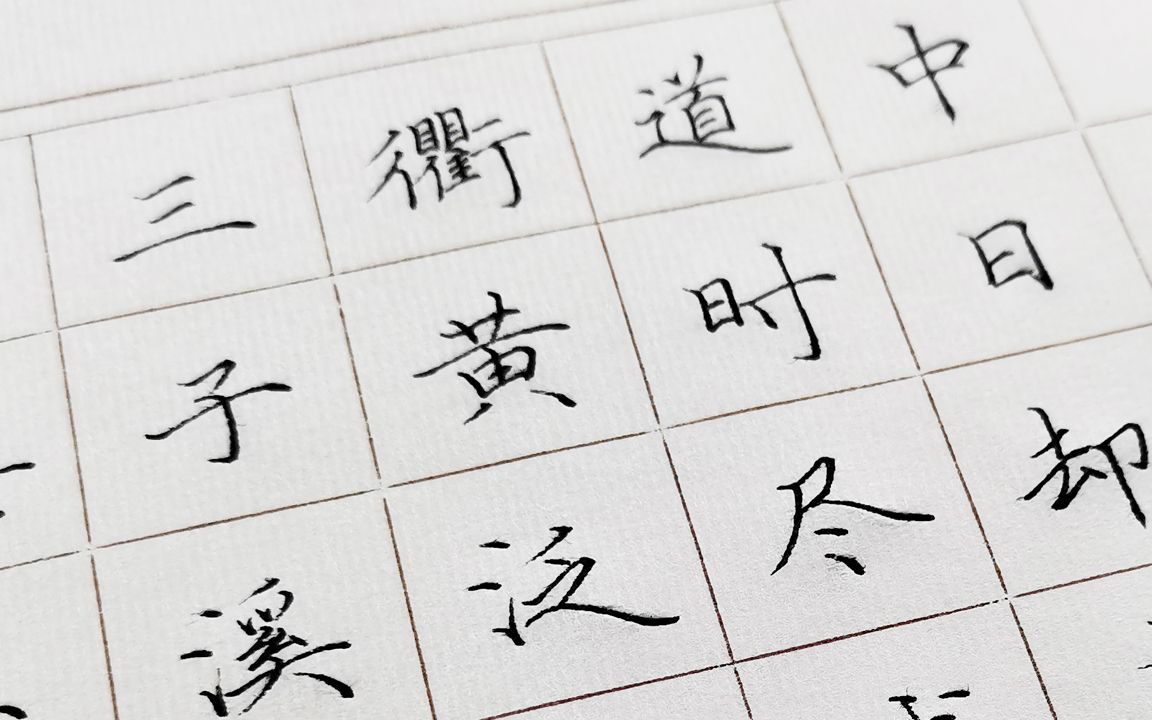 三衢道中
子黄时日
溪泛尽却